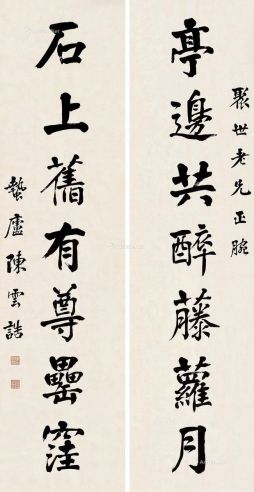 聚世老先正腕
亭邊共醉藤蘿月
石上舊有尊罍窪
蟄廬陳雲誥